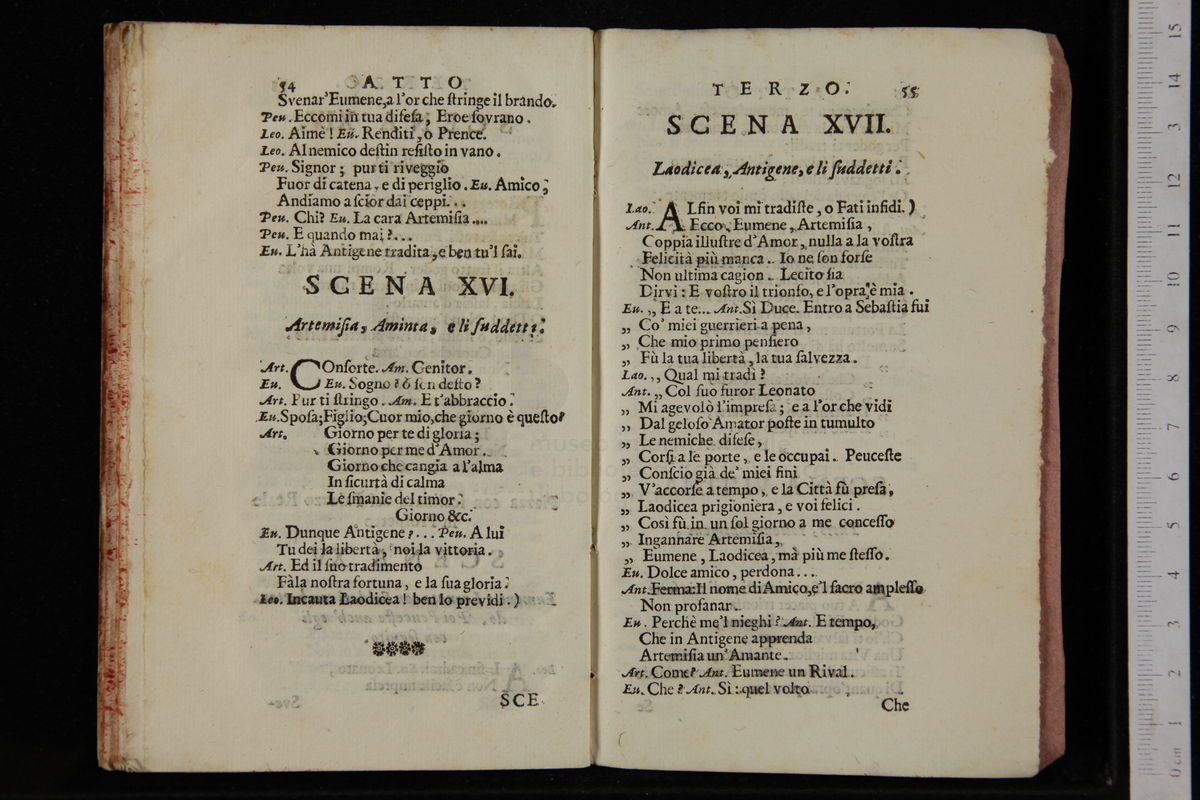 54 ATTO
Svenar' Eumene, a l'or che ſtringe il brando.
Peu. Eccomi in tua difeſa, Eroe ſovrano.
Leo. Aimè! Eu. Renditi, o Prence.
Leo. Al nemico deſtin reſiſto in vano.
Peu. Signor; pur ti riveggio
Fuor di catena, e di periglio. Eu. Amico,
Andiamo a ſcior dai ceppi...
Peu. Chi? Eu. La cara Artemiſia....
Peu. E quando mai?...
Eu. L'hà Antigene tradita, e ben tu'l ſai.
SCENA XVI.
Artemiſia, Aminta, e li ſuddetti.
Art. COnſorte. Am. Genitor.
Eu. Eu. Sogno? ò ſon deſto?
Art. Pur ti ſtringo. Am. E t'abbraccio.
Eu. Spoſa; Figlio; Cuor mio, che giorno è queſto?
Art. Giorno per te di gloria;
Giorno per me d'Amor.
Giorno che cangia a l'alma
In ſicurtà di calma
Le ſmanie del timor.
Giorno &c.
Eu. Dunque Antigene?... Peu. A lui
Tu dei la libertà, noi la vittoria.
Art. Ed il ſuo tradimento
Fà la noſtra fortuna, e la ſua gloria.
Leo. Incauta Laodicea! ben lo previdi.)
SCE-
TERZO. 55
SCENA XVII.
Laodicea, Antigene, e li ſuddetti.
Lao. ALfin voi mi tradiſte, o Fati infidi.)
Ant. Ecco, Eumene, Artemiſia,
Coppia illuſtre d'Amor, nulla a la voſtra
Felicità più manca. Io ne ſon forſe
Non ultima cagion. Lecito ſia
Dirvi: E voſtro il trionfo, e l'opra è mia.
Eu. ,, E a te... Ant. Sì Duce. Entro a Sebaſtia fui
,, Co' miei guerrieri a pena,
,, Che mio primo penſiero
,, Fù la tua libertà, la tua ſalvezza.
Lao. ,, Qual mi tradì?
Ant. ,, Col ſuo furor Leonato
,, Mi agevolò l'impreſa; e a l'or che vidi
,, Dal geloſo Amator poſte in tumulto
,, Le nemiche difeſe,
,, Corſi a le porte, e le occupai. Peuceſte
,, Conſcio già de' miei fini
,, V'accorſe a tempo, e la Città fù preſa,
,, Laodicea prigioniera, e voi felici.
,, Così fù in un ſol giorno a me conceſſo
,, Ingannare Artemiſia,
,, Eumene, Laodicea, mà più me ſteſſo.
Eu. Dolce amico, perdona....
Ant. Ferma: Il nome di Amico, e'l ſacro ampleſſo
Non profanar.
Eu. Perchè me'l nieghi? Ant. E tempo,
Che in Antigene apprenda
Artemiſia un' Amante.
Art. Come? Ant. Eumene un Rival.
Eu. Che? Ant. Sì: quel volto
Che